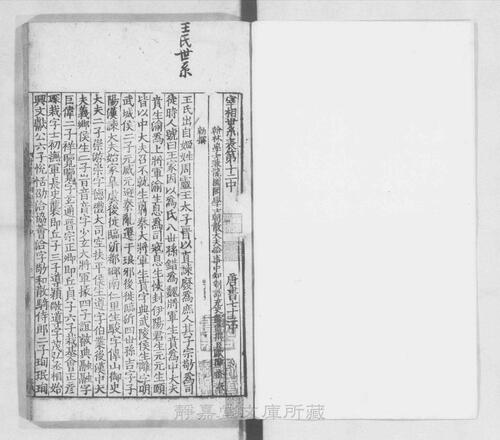 王氏世系
宰相世系表第十二中　唐書七十二中
翰林學士兼龍圖閣學士朝散大夫給事中知制誥充史館脩撰臣歐陽脩奉
勑撰
王氏出自姬姓周靈王太子晉以直諫廢爲庶人其子宗敬爲司
徒時人號曰王家因以爲氏八世孫錯爲魏將軍生賁爲中大夫
賁生渝爲上將軍渝生息爲司寇息生恢封伊陽君生元元生頤
皆以中大夫召不就生翦秦大將軍生賁字典武陵侯生離字明
武城侯二子元威元避秦亂遷于琅邪後徙臨沂四世孫吉字子
陽漢諫大夫始家皐虞後徙臨沂都鄉南仁里生駿字偉山御史
大夫二子崇游崇字德禮大司空扶平侯生遵字伯業後漢中大
夫義鄉侯生二子旹音音字少玄大將軍掾四子誼叡典融融字
巨偉二子祥覽覽字玄通晉宗正卿即丘貞子六子裁基會正彥
琛裁字士初撫軍長史襲即丘子三子導潁敞導字茂弘丞相始
興文獻公六子悅恬劭洽協薈洽字敬和散騎侍郎二子珣珉珣
靜嘉堂文庫所藏